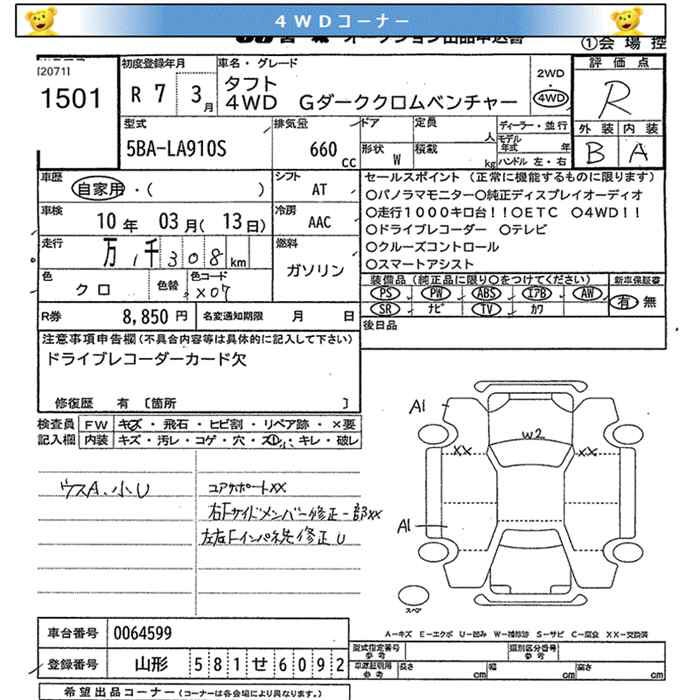 4WDコーナー
オークション出品申込書
①会場控
[2071]
1501
初度登録年月
R 7 3月
車名・グレード
タフト
4WD Gダーククロムベンチャー
2WD
・
4WD
評価点
R
外装 内装
B A
型式
5BA-LA910S
排気量
660 cc
ドア
形状 W
定員 人
積載 kg
ディーラー・並行
モデル年式 年
ハンドル 左・右
車歴
自家用・( )
シフト
AT
車検
10年 03月( 13日)
冷房
AAC
走行
万 1千308km
燃料
ガソリン
色
クロ
色替
色コード
X07
R券
8,850円
名変通知期限 月 日
セールスポイント (正常に機能するものに限ります)
○パノラマモニター○純正ディスプレイオーディオ
○走行1000キロ台!!○ETC ○4WD!!
○ドライブレコーダー ○テレビ
○クルーズコントロール
○スマートアシスト
装備品(純正品に限り○をつけてください)
PS PW ABS エアB AW
SR ナビ TV カワ
新車保証書
有 無
後日品
注意事項申告欄(不具合内容等は具体的に記入して下さい)
ドライブレコーダーカード欠
修復歴 有 〔箇所 〕
検査員記入欄
FW キズ・飛石・ヒビ割・リペア跡・×要
内装 キズ・汚レ・コゲ・穴・スレ・キレ・破レ
ウスA、小U
コアサポートXX
右Fサイドメンバー修正一部XX
左右Fインパネ先修正U
A1
W2
XX
XX
A1
スペア
A-キズ E-エクボ U-凹み W-補修跡 S-サビ C-腐食 XX-交換済
車台番号 0064599
登録番号 山形 581せ6092
型式指定番号 参考
類別区分番号 参考
車庫証明用 参考
長さ cm 幅 cm 高さ cm
希望出品コーナー(コーナーは各会場により異なります。)